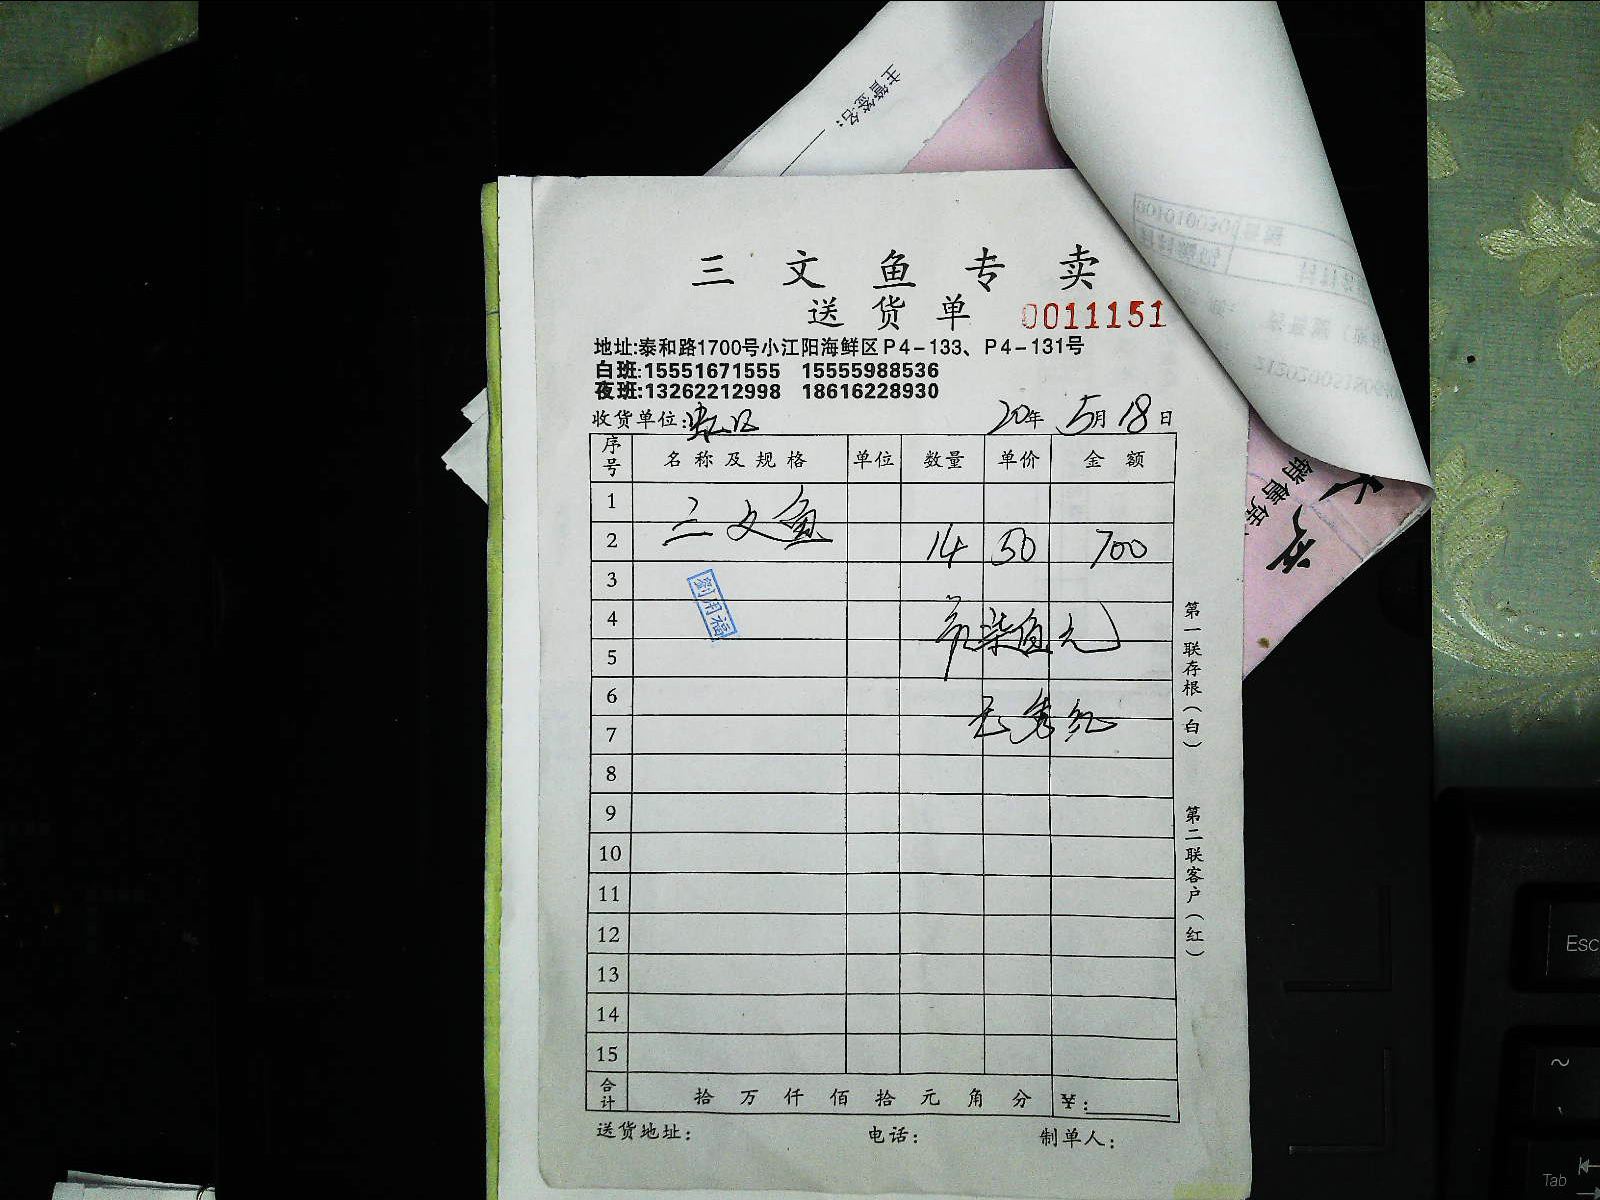 主管签名:
三文鱼专卖
送货单 0011151
地址:泰和路1700号小江阳海鲜区P4-133、P4-131号
白班:15551671555 15555988536
夜班:13262212998 18616228930
收货单位:虹口 20年5月18日
序号 名称及规格 单位 数量 单价 金额
1
三文鱼
2 14 50 700
3
劉用福
4
柒佰元
5
6
7
8
9
10
11
12
13
14
15
合计 拾万仟佰拾元角分 ¥:
送货地址: 电话: 制单人:
第一联存根(白)
第二联客户(红)
销售
Esc
~
Tab